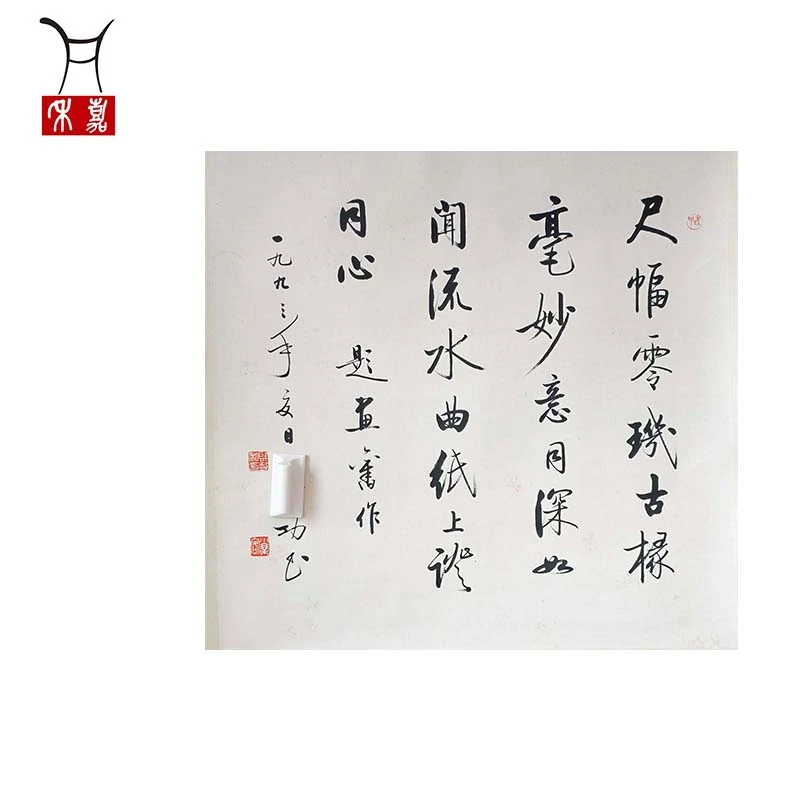 尺幅零璣古椽
毫妙意同深如
聞流水曲紙上證
同心 題畫舊作
一九九三年夏日 功書